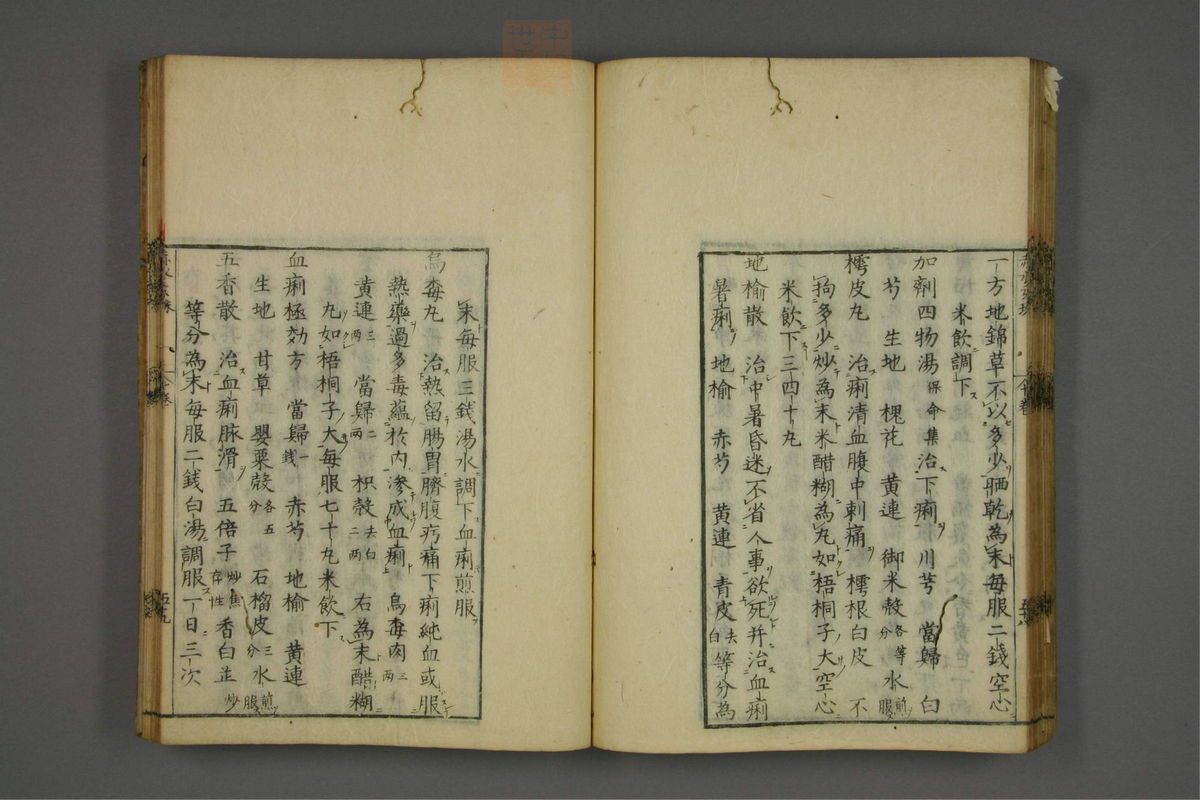 一方地錦草不以多少晒乾為末毎服二錢空心
米飲調下
加劑四物湯保命集治下痢川芎 當歸 白
芍 生地 槐花 黄連 御米殻各等分水煎服
樗皮丸 治痢清血腹中刺痛 樗根白皮 不
拘多少炒為末米醋糊為丸如梧桐子大空心
米飲下三四十丸
地榆散 治中暑昏迷不省人事欲死并治血痢
暑痢 地榆 赤芍 黄連 青皮去白等分為
末毎服三錢湯水調下血痢煎服
烏梅丸 治熱留腸胃臍腹㽲痛下痢純血或服
熱藥過多毒蘊於内滲成血痢 烏梅肉三兩
黄連三兩 當歸二兩 枳殻去白二兩 右為末醋糊
丸如梧桐子大毎服七十丸米飲下
血痢極効方 當歸一錢 赤芍 地榆 黄連
生地 甘草 罌粟殻各五分 石榴皮三分水煎服
五香散 治血痢脉滑 五倍子炒焦存性香白芷炒
等分為末毎服二錢白湯調服一日三次
五十九